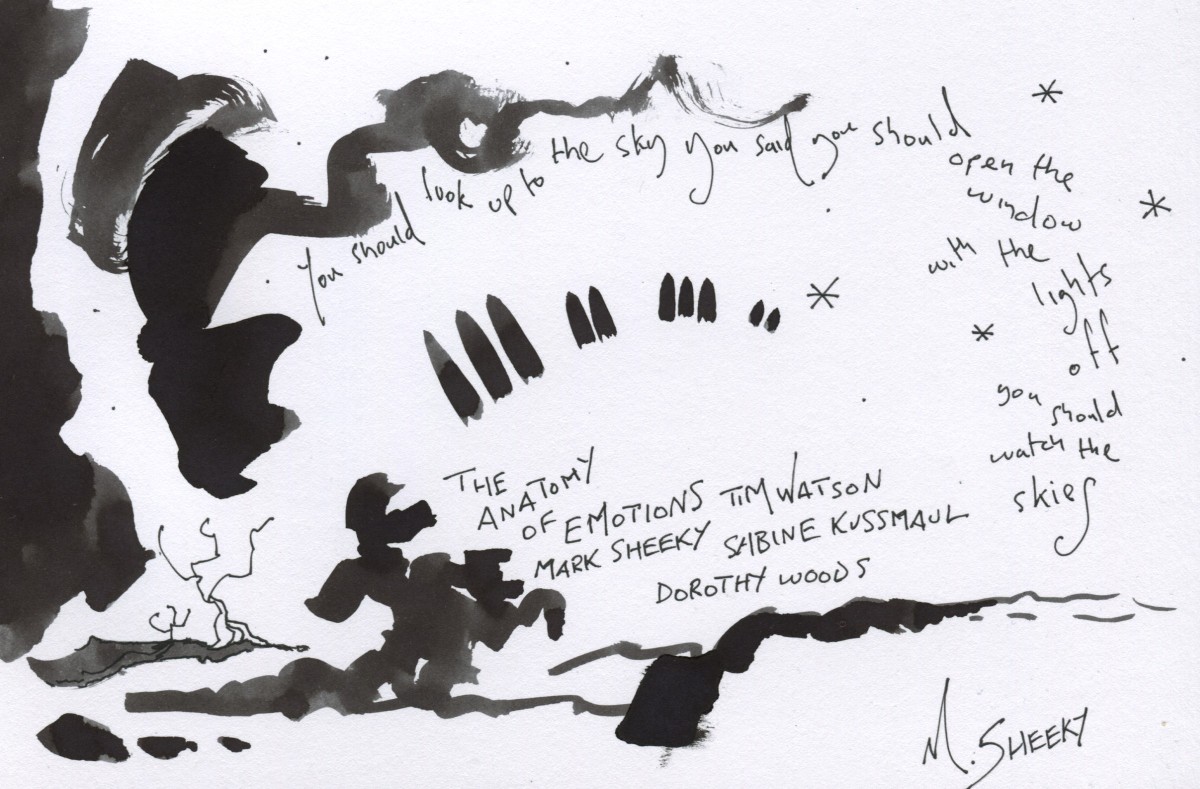 You should look up to the sky you said you should
open the
window
with the
lights
off
you should
watch the
skies
THE
ANATOMY
OF EMOTIONS TIM WATSON
MARK SHEEKY SABINE KUSSMAUL
DOROTHY WOODS
M. SHEEKY